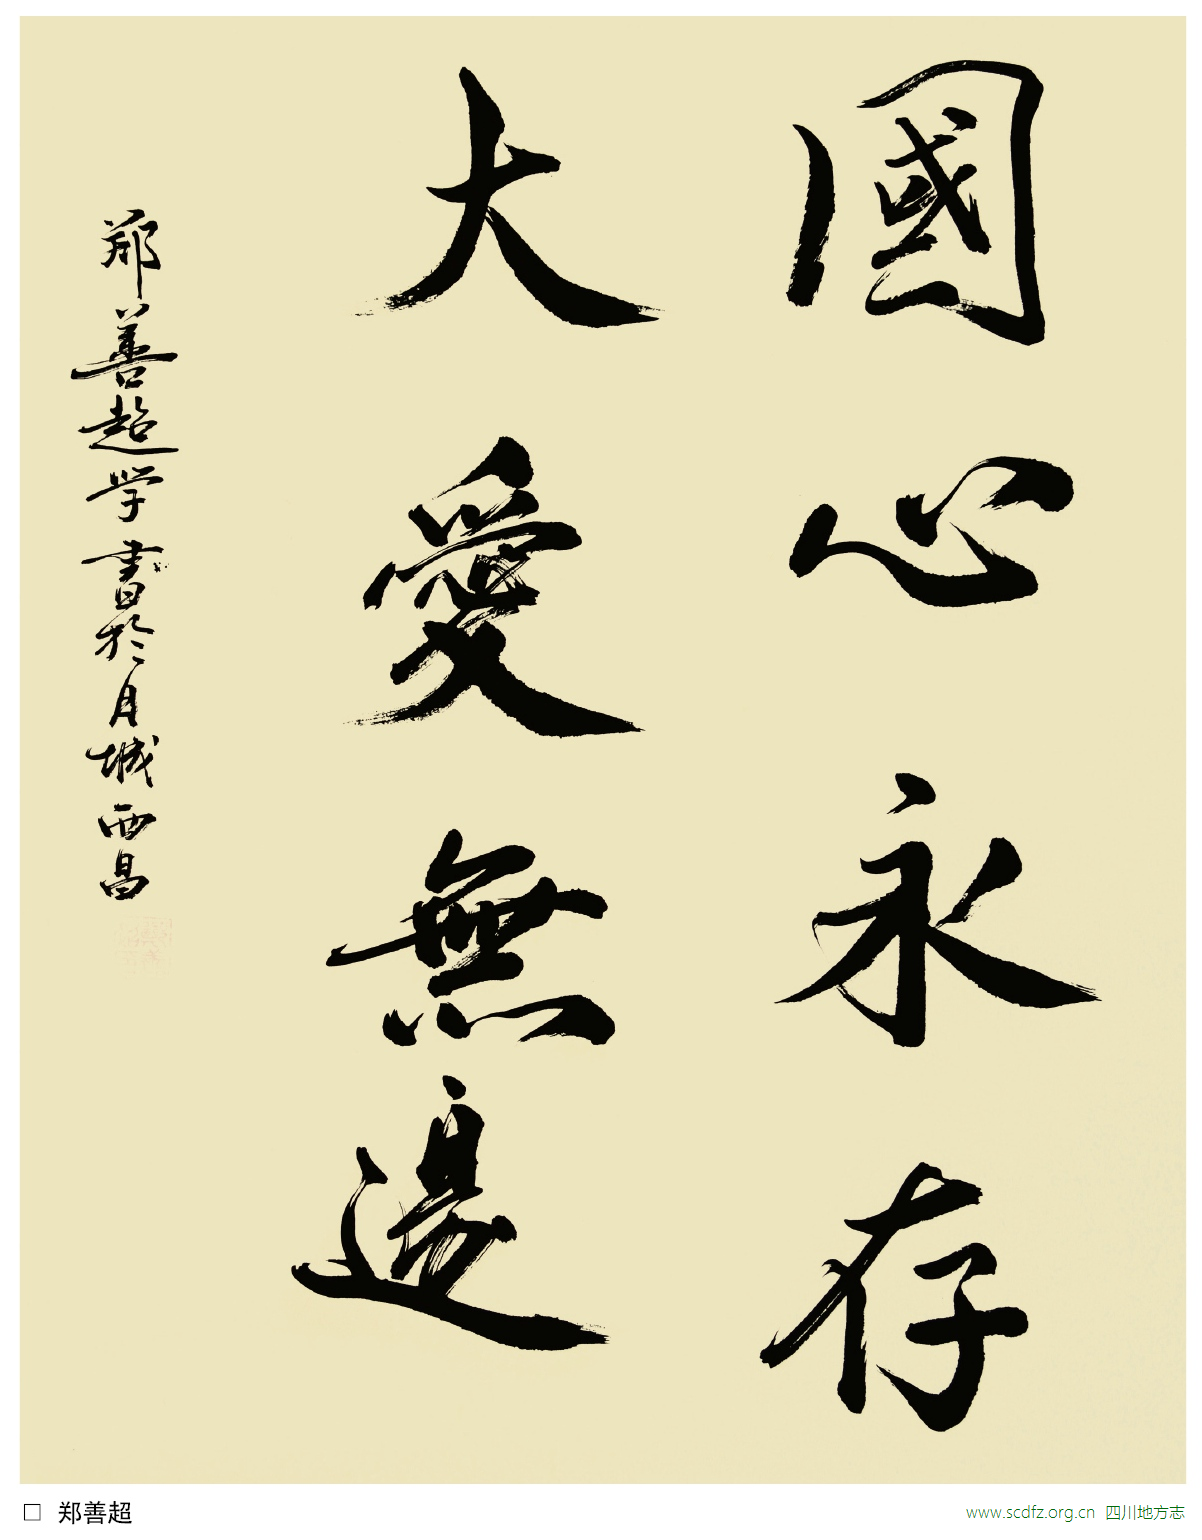 國心永存
大愛無邊
鄭善超学書於月城西昌
□ 郑善超
www.scdfz.org.cn 四川地方志